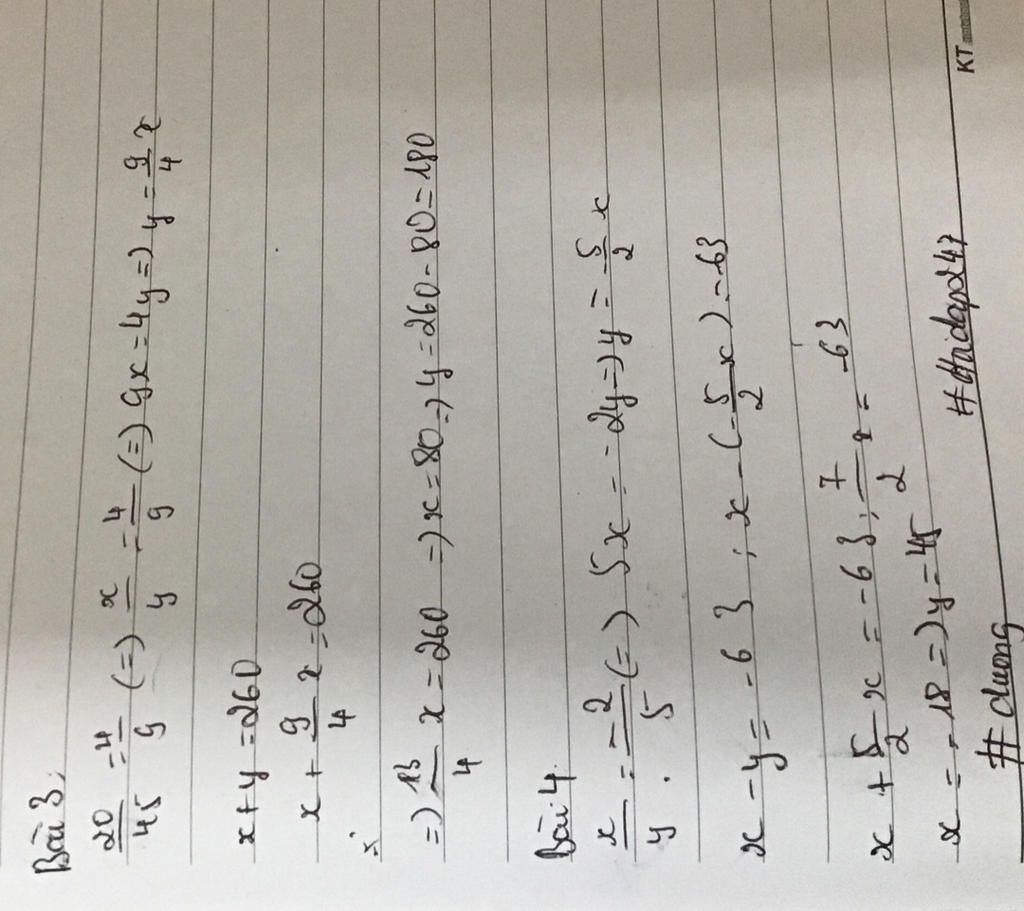 Bài 3:
20/45 = 4/9 (=) x/y = 4/9 (=) 9x = 4y =) y = 9/4 x
x + y = 260
x + 9/4 x = 260
=) 13/4 x = 260 =) x = 80 =) y = 260 - 80 = 180
Bài 4.
x/y = -2/5 (=) 5x = -2y =) y = -5/2 x
x - y = -63 ; x - (-5/2 x) = -63
x + 5/2 x = -63 ; 7/2 x = -63
x = -18 =) y = 45
#duong #hoidap247
KT